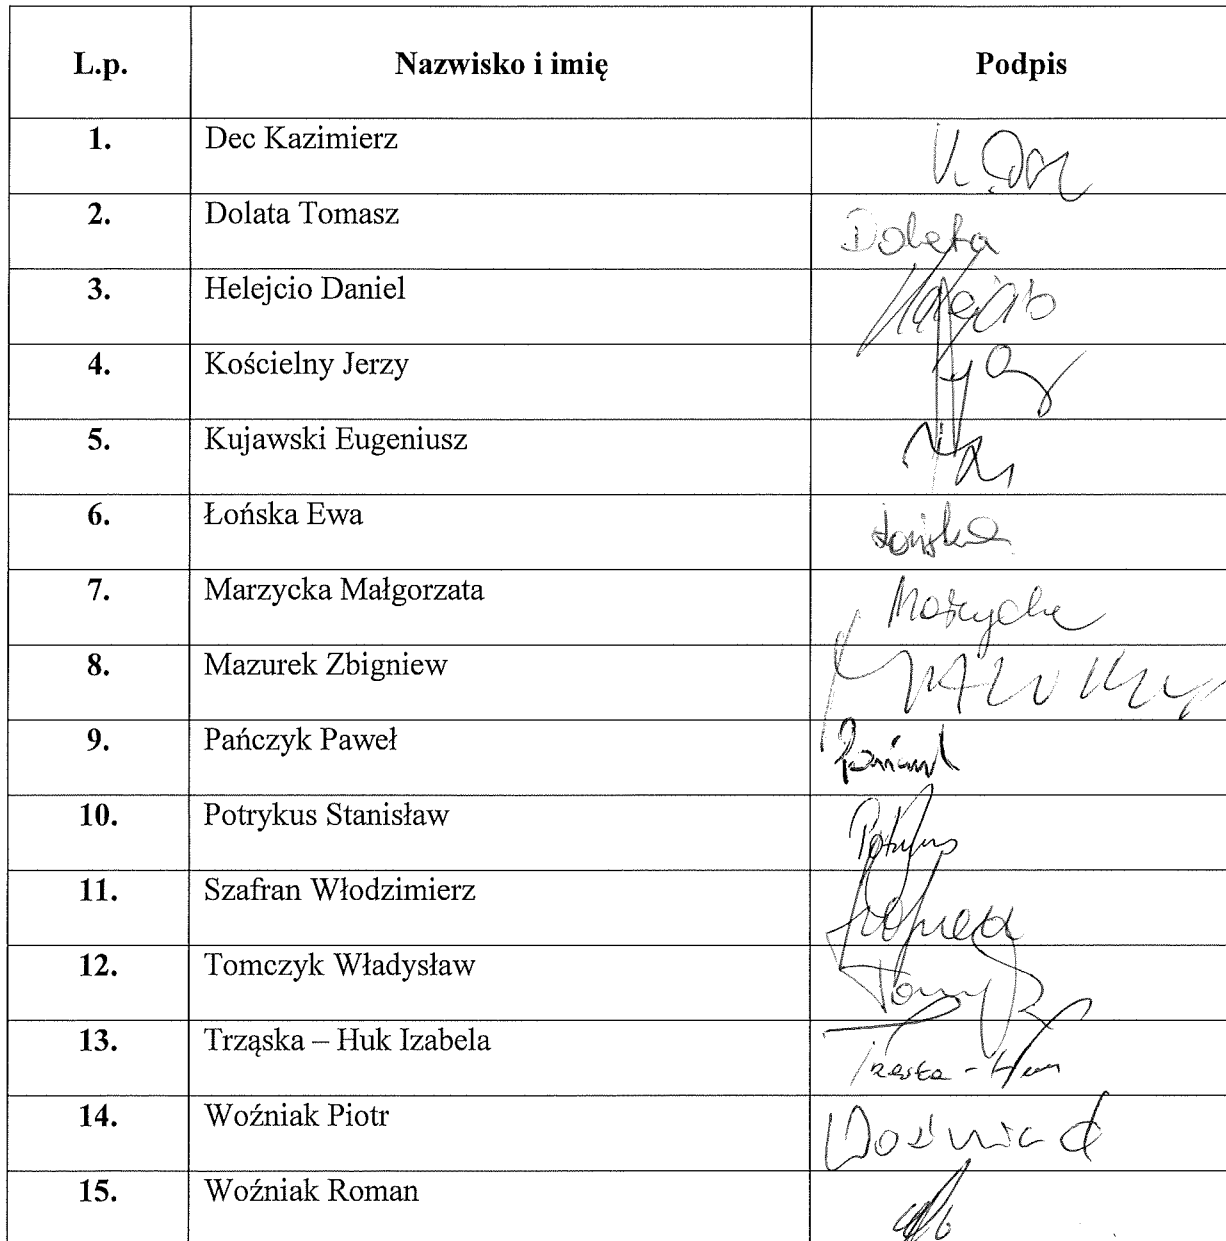 L.p. Nazwisko i imię Podpis
1. Dec Kazimierz K. Dec
2. Dolata Tomasz Dolata
3. Helejcio Daniel Helejcio
4. Kościelny Jerzy
5. Kujawski Eugeniusz
6. Łońska Ewa Łońska
7. Marzycka Małgorzata Marzycka
8. Mazurek Zbigniew MAZUREK
9. Pańczyk Paweł Pańczyk
10. Potrykus Stanisław Potrykus
11. Szafran Włodzimierz
12. Tomczyk Władysław
13. Trząska – Huk Izabela Trząska - Huk
14. Woźniak Piotr Woźniak
15. Woźniak Roman